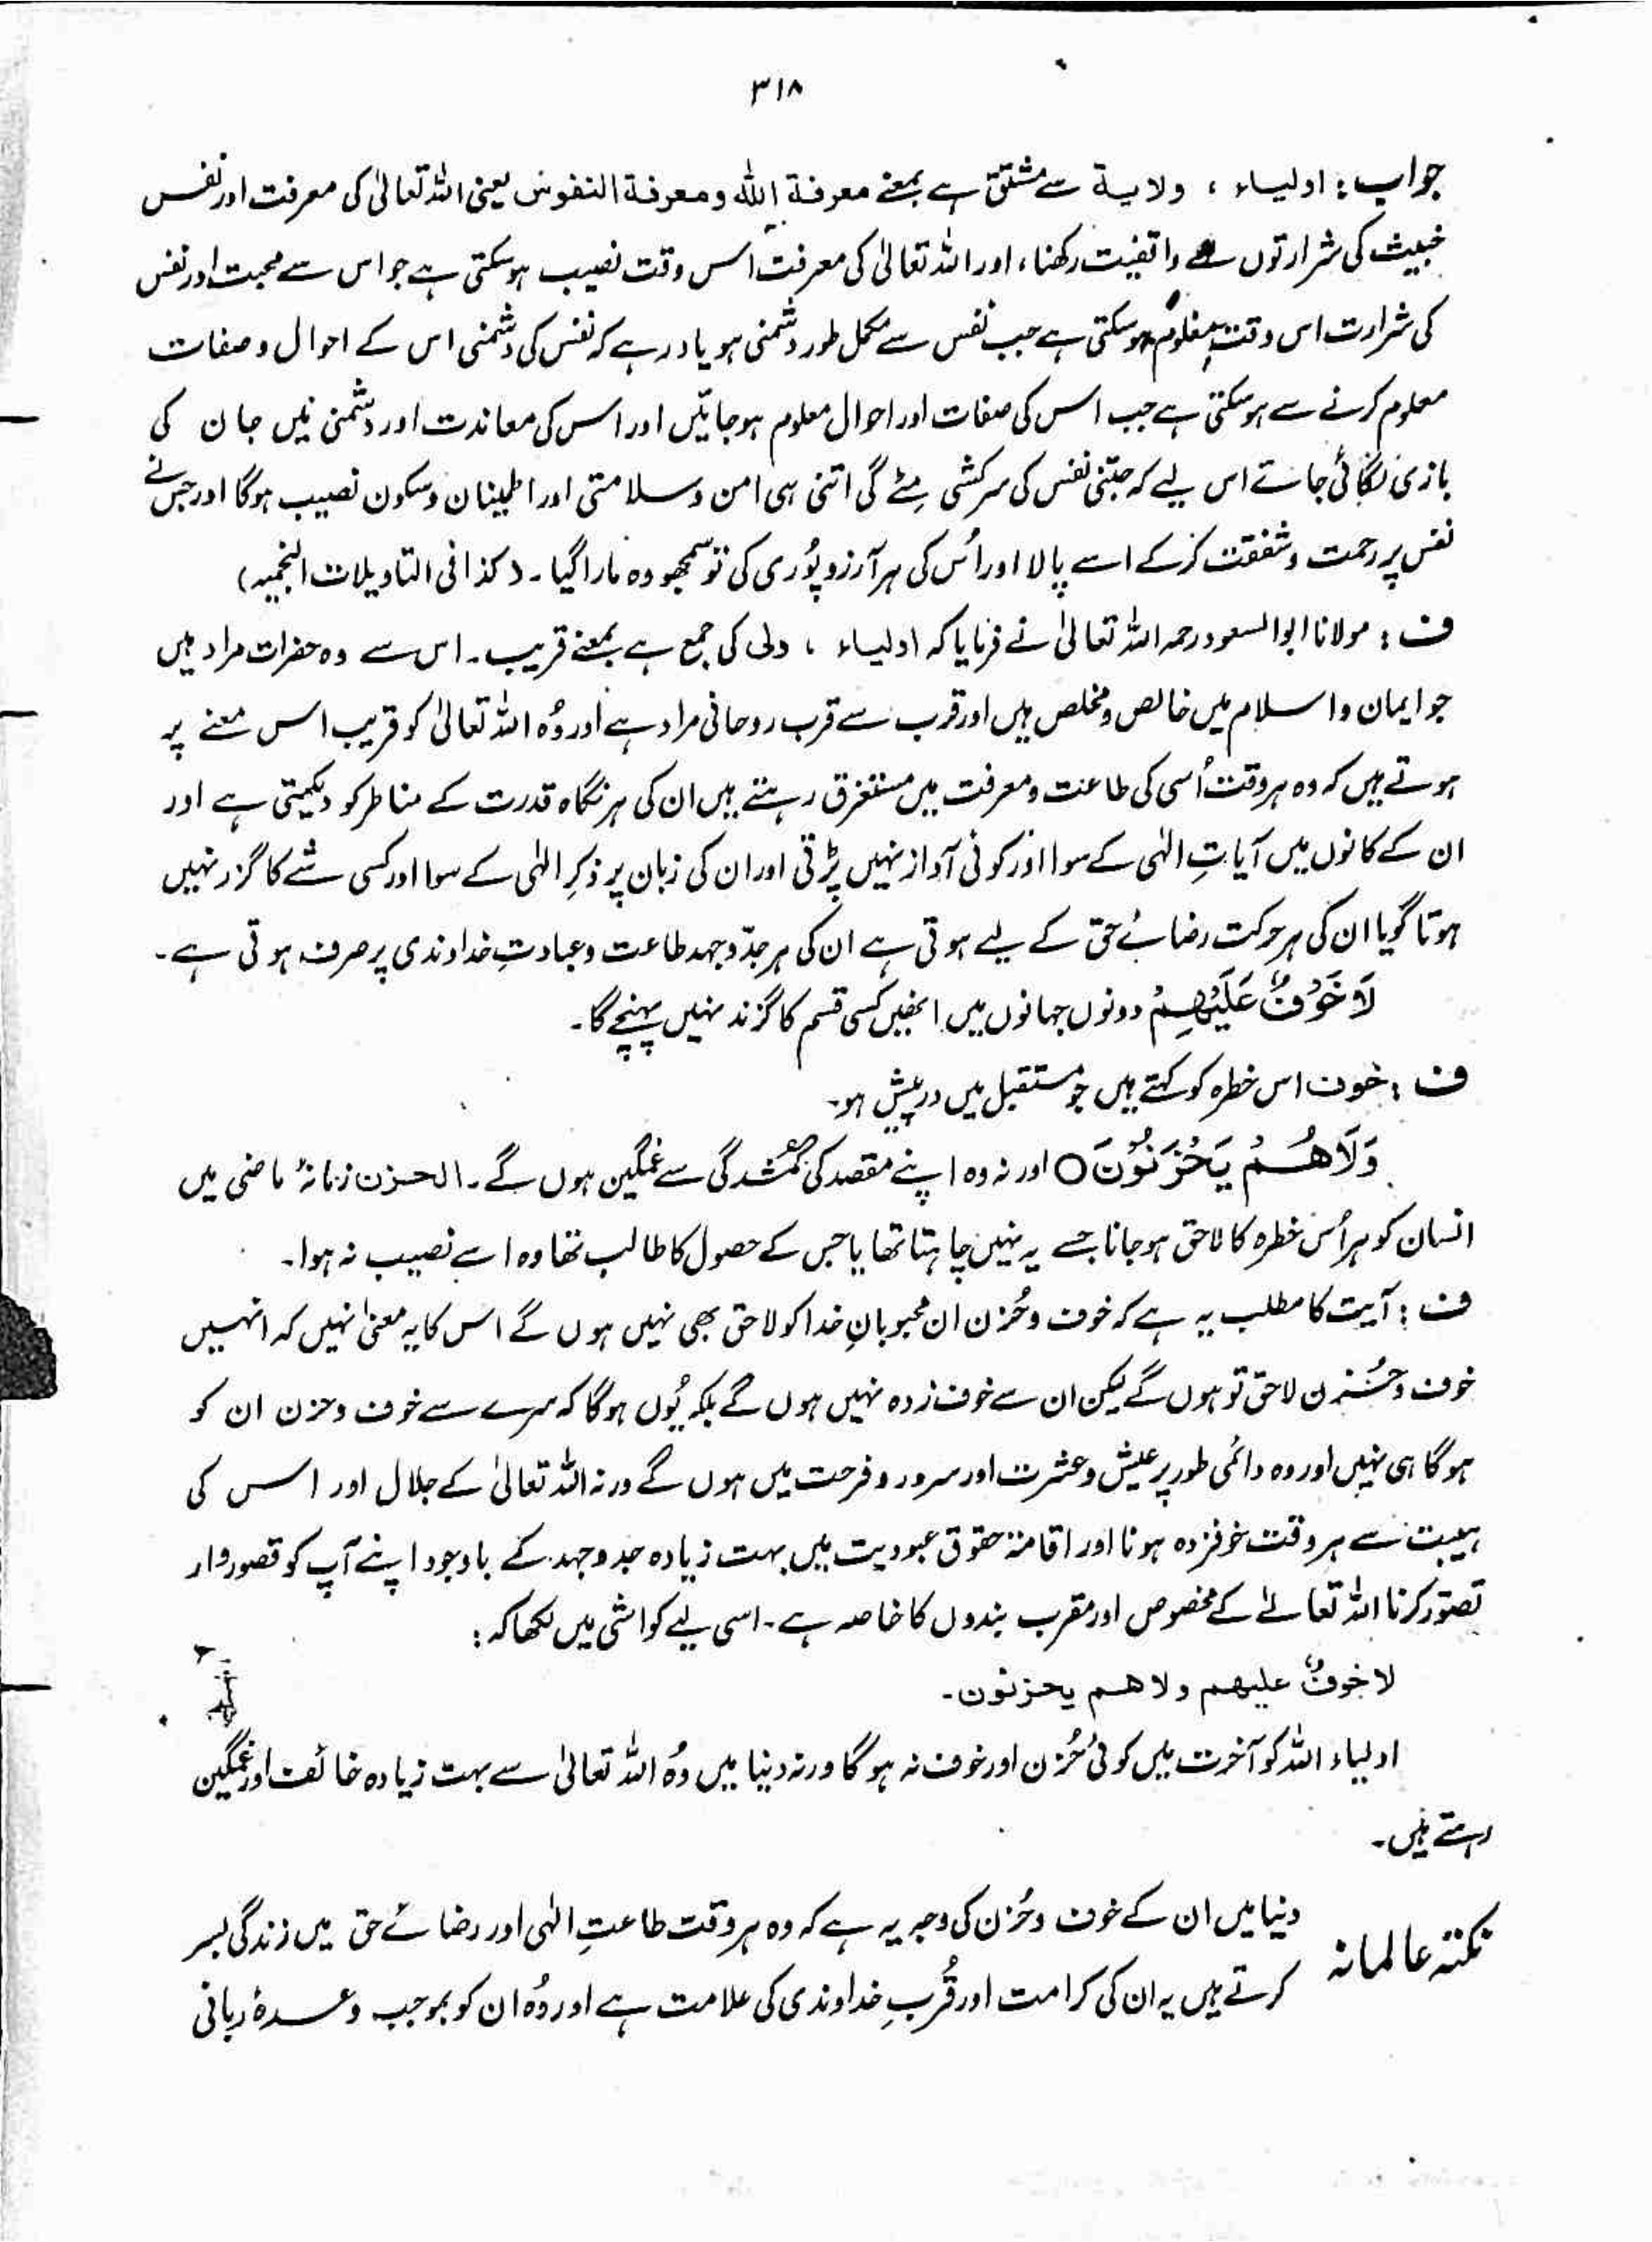 ۳۱۸
جواب: اولیاء، ولایۃ سے مشتق ہے بمعنے معرفۃ اللہ و معرفۃ النفوس یعنی اللہ تعالیٰ کی معرفت اور نفس
خبیث کی شرارتوں سے واقفیت رکھنا، اور اللہ تعالیٰ کی معرفت اس وقت نصیب ہو سکتی ہے جو اس سے محبت اور نفس
کی شرارت اس وقت معلوم ہو سکتی ہے جب نفس سے مکمل طور دشمنی ہو یاد رہے کہ نفس کی دشمنی اس کے احوال و صفات
معلوم کرنے سے ہو سکتی ہے جب اس کی صفات اور احوال معلوم ہو جائیں اور اس کی معاندت اور دشمنی میں جان کی
بازی لگائی جائے اس لیے کہ جتنی نفس کی سرکشی مٹے گی اتنی ہی امن و سلامتی اور اطمینان و سکون نصیب ہو گا اور جس نے
نفس پر رحمت و شفقت کر کے اسے پالا اور اُس کی ہر آرزو پُوری کی تو سمجھو وہ مارا گیا۔ (کذا فی التاویلات النجمیہ)
ف: مولانا ابو السعود رحمہ اللہ تعالیٰ نے فرمایا کہ اولیاء، ولی کی جمع ہے بمعنے قریب۔ اس سے وہ حضرات مراد ہیں
جو ایمان و اسلام میں خالص و مخلص ہیں اور قرب سے قرب روحانی مراد ہے اور وُہ اللہ تعالیٰ کو قریب اس معنے پر
ہوتے ہیں کہ وہ ہر وقت اُسی کی طاعت و معرفت میں مستغرق رہتے ہیں ان کی ہر نگاہ قدرت کے مناظر کو دیکھتی ہے اور
ان کے کانوں میں آیاتِ الٰہی کے سوا اور کوئی آواز نہیں پڑتی اور ان کی زبان پر ذکرِ الٰہی کے سوا اور کسی شے کا گزر نہیں
ہوتا گویا ان کی ہر حرکت رضائے حق کے لیے ہوتی ہے ان کی ہر جدّ و جہد طاعت و عبادتِ خداوندی پر صرف ہوتی ہے۔
لَا خَوْفٌ عَلَیْہِمْ دونوں جہانوں میں انھیں کسی قسم کا گزند نہیں پہنچے گا۔
ف: خوف اس خطرہ کو کہتے ہیں جو مستقبل میں درپیش ہو۔
وَلَا ھُمْ یَحْزَنُوْنَ ○ اور نہ وہ اپنے مقصد کی گمشدگی سے غمگین ہوں گے۔ الحزن زمانہ ماضی میں
انسان کو ہر اُس خطرہ کا لاحق ہو جانا جسے یہ نہیں چاہتا تھا یا جس کے حصول کا طالب تھا وہ اسے نصیب نہ ہوا۔
ف: آیت کا مطلب یہ ہے کہ خوف و حُزن ان محبوبانِ خدا کو لاحق بھی نہیں ہوں گے اس کا یہ معنیٰ نہیں کہ انہیں
خوف و حُزن لاحق تو ہوں گے لیکن ان سے خوف زدہ نہیں ہوں گے بلکہ یُوں ہو گا کہ سرے سے خوف و حزن ان کو
ہو گا ہی نہیں اور وہ دائمی طور پر عیش و عشرت اور سرور و فرحت میں ہوں گے ورنہ اللہ تعالیٰ کے جلال اور اس کی
ہیبت سے ہر وقت خوفزدہ ہونا اور اقامۃ حقوق عبودیت میں بہت زیادہ جد و جہد کے باوجود اپنے آپ کو قصوروار
تصوّر کرنا اللہ تعالےٰ کے مخصوص اور مقرب بندوں کا خاصہ ہے۔ اسی لیے کواشی میں لکھا کہ:
لا خوفٌ علیھم ولا ھم یحزنون۔
اولیاء اللہ کو آخرت میں کوئی حُزن اور خوف نہ ہو گا ورنہ دنیا میں وُہ اللہ تعالیٰ سے بہت زیادہ خائف اور غمگین
رہتے ہیں۔
نکتۂ عالمانہ دنیا میں ان کے خوف و حُزن کی وجہ یہ ہے کہ وہ ہر وقت طاعتِ الٰہی اور رضائے حق میں زندگی بسر
کرتے ہیں یہ ان کی کرامت اور قُربِ خداوندی کی علامت ہے اور وُہ ان کو بموجب وعدۂ ربانی